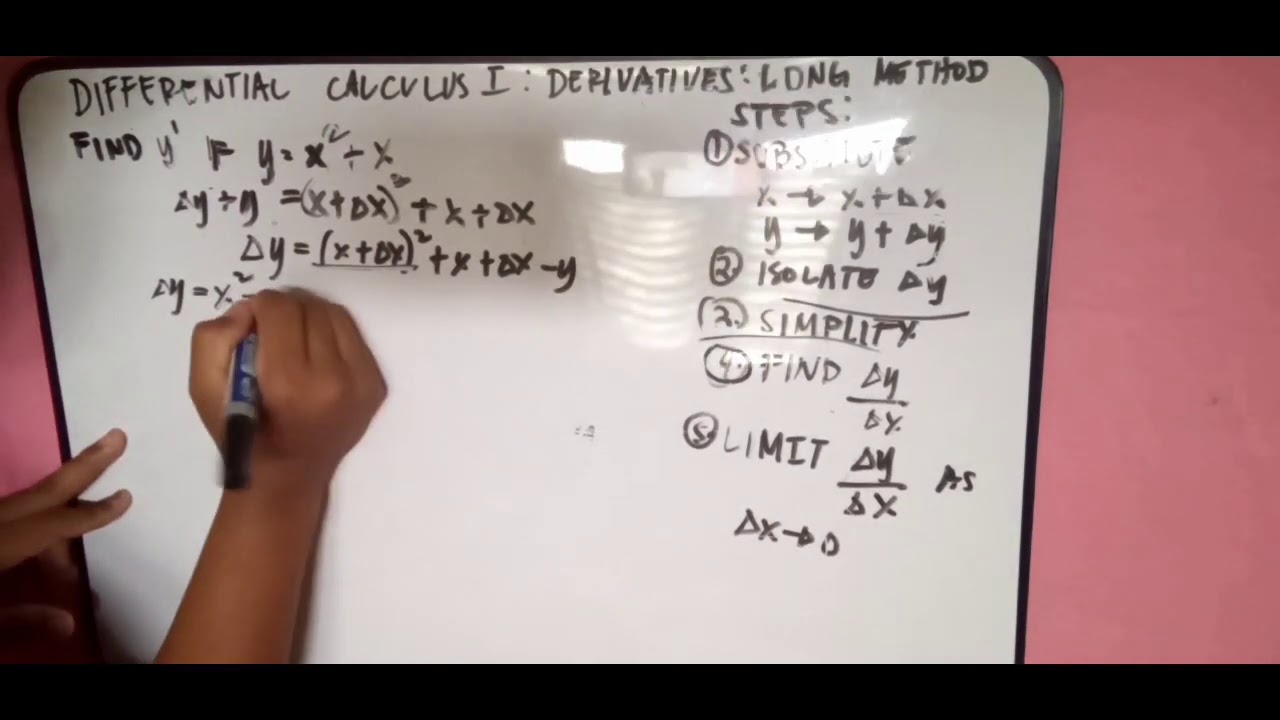 DIFFERENTIAL CALCULUS I : DERIVATIVES: LONG METHOD
FIND y' IF y = x² + x
Δy + y = (x+Δx)² + x + Δx
Δy = (x+Δx)² + x + Δx - y
Δy = x²
STEPS:
① SUBSTITUTE
x → x + Δx
y → y + Δy
②. ISOLATE Δy
(3.) SIMPLIFY
④. FIND Δy
Δx
⑤. LIMIT Δy AS
Δx
Δx → 0